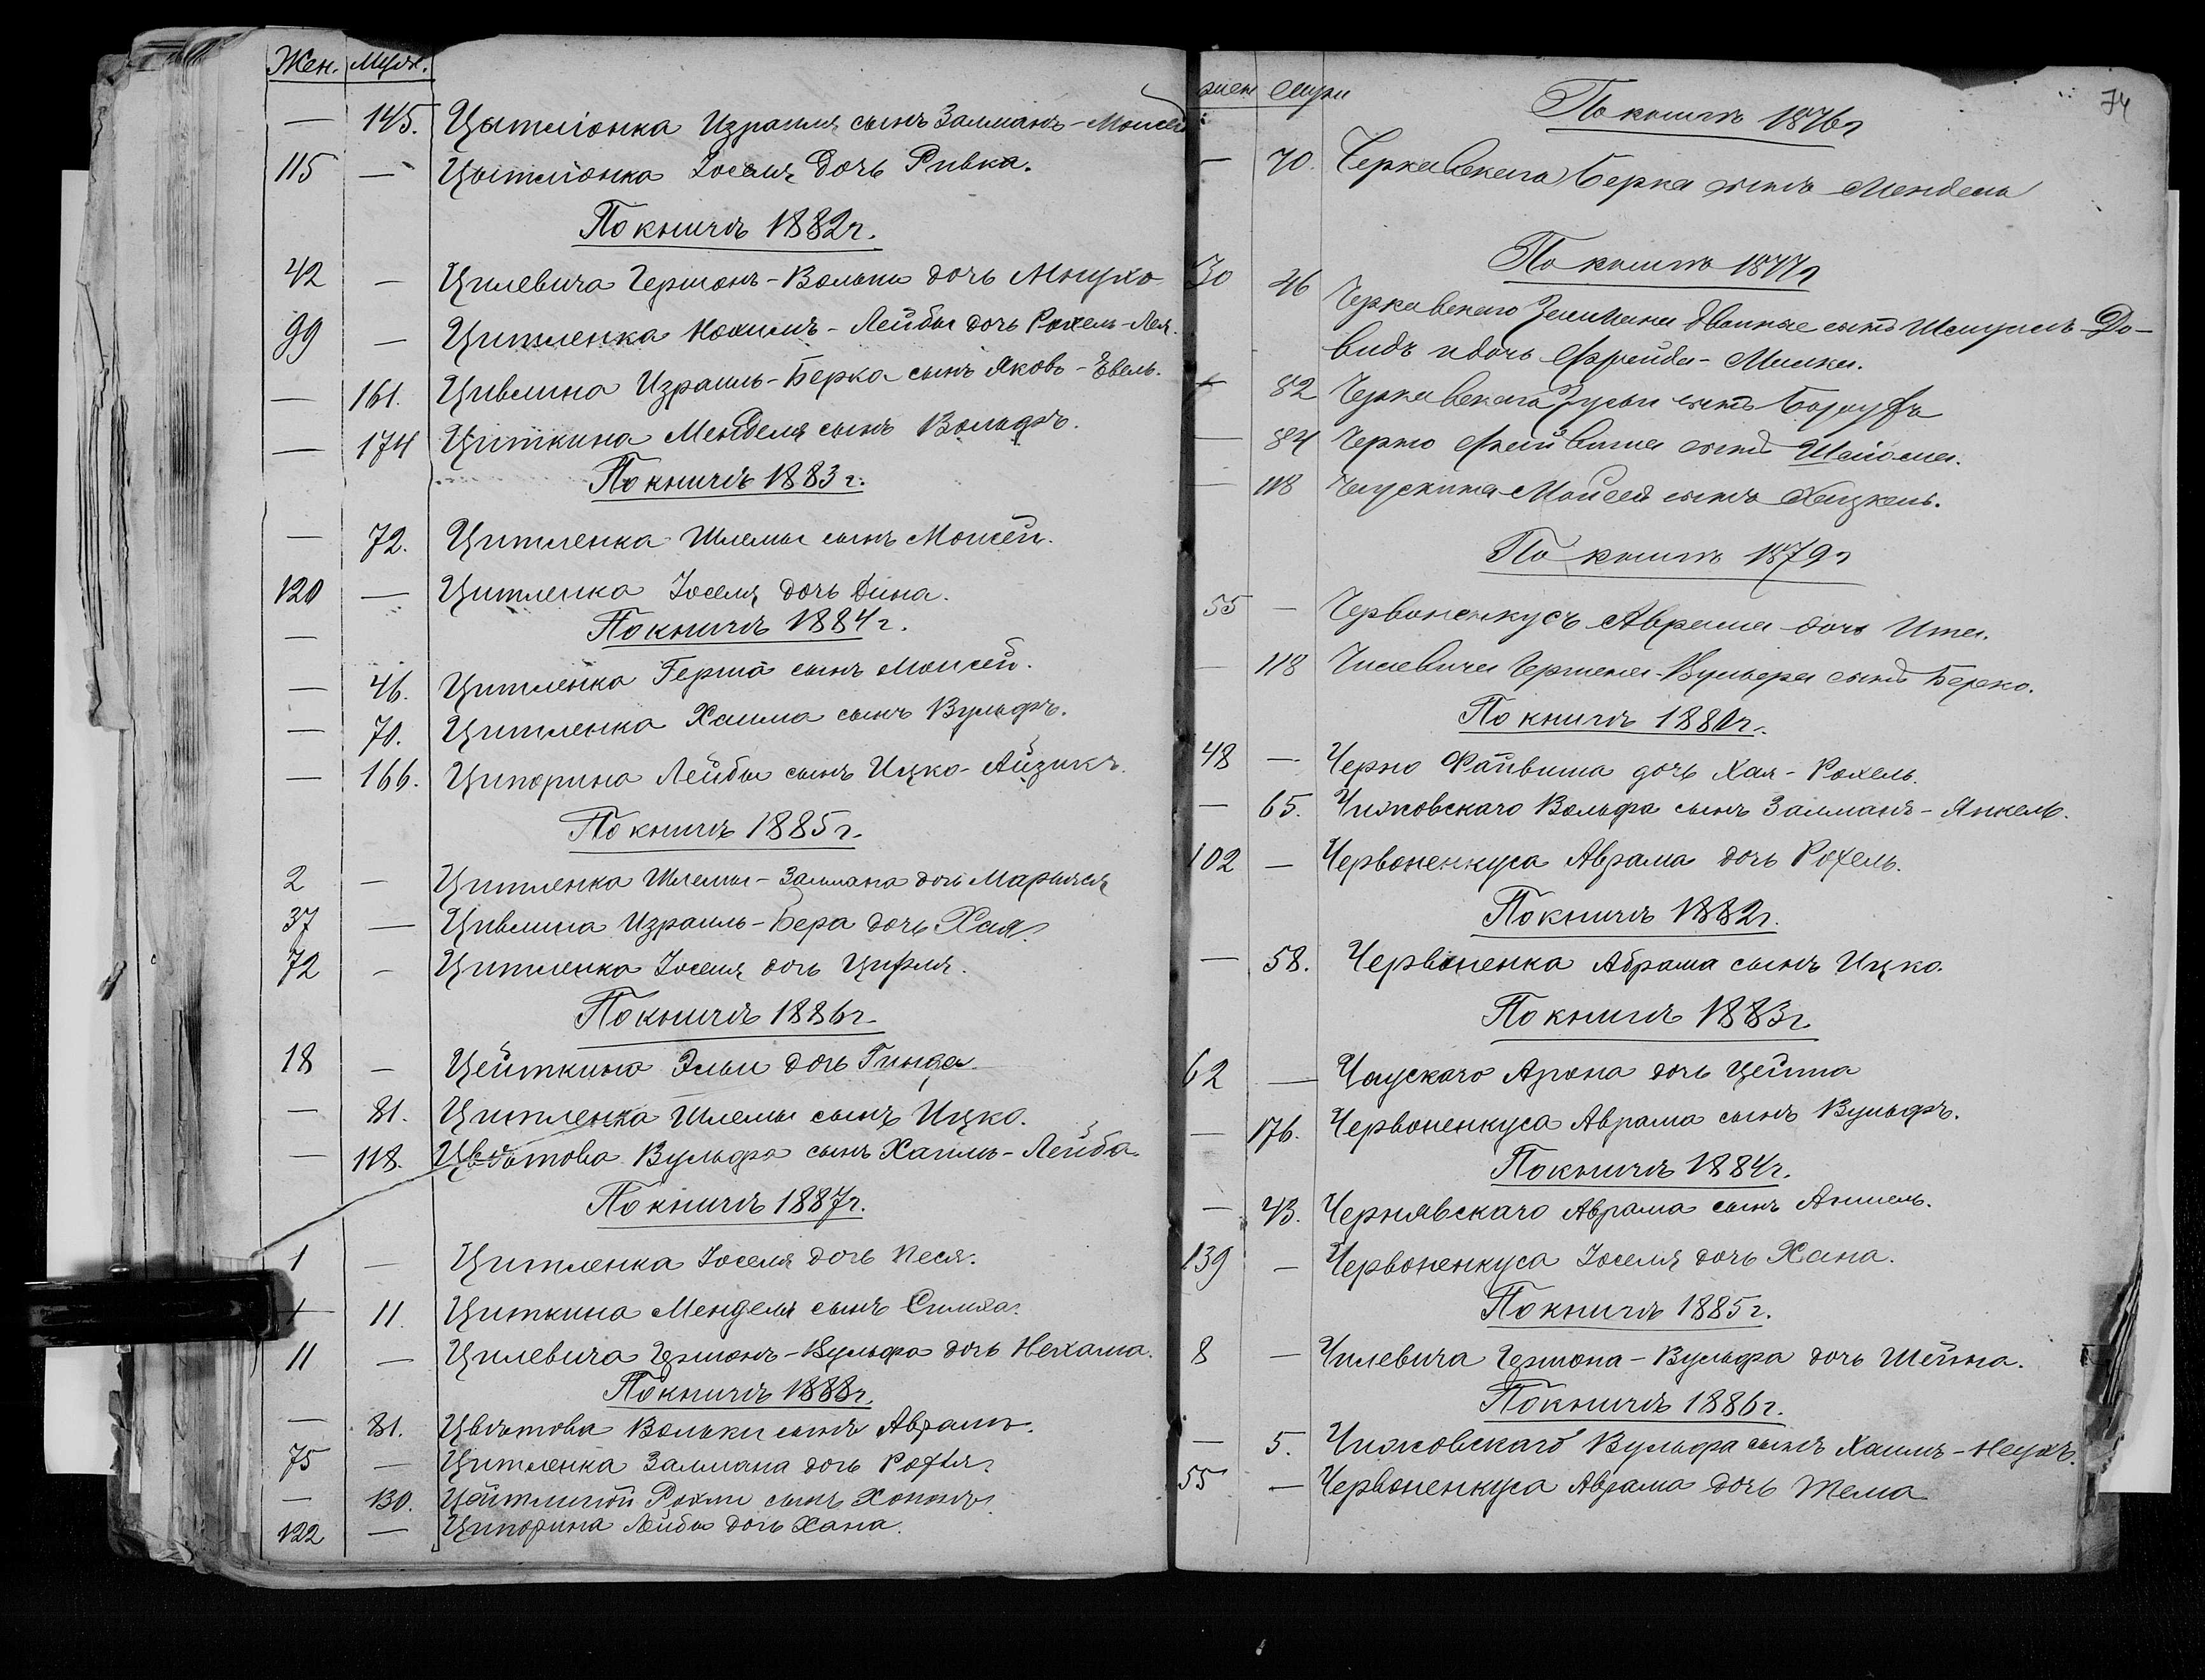 Жен. Муж.
— 145. Цытліонка Израиля сынъ Залманъ-Мовсей
115 — Цытліонка Іоселя дочь Ривка.
По книгѣ 1882 г.
42 — Цилевича Гершонъ-Вольки дочь Мнухо
99 — Цитленка Нохимъ-Лейбы дочь Рохель-Лея.
— 161. Цивлина Израиль-Берка сынъ Яковъ-Евель.
— 174 Циткина Менделя сынъ Вольфъ.
По книгѣ 1883 г.
— 72. Цитленка Шлемы сынъ Мовсей.
120 — Цитленка Іоселя дочь Дина.
По книгѣ 1884 г.
—
— 46. Цитленка Герша сынъ Мовсей.
— 70. Цитленка Хаима сынъ Вульфъ.
— 166. Ципорина Лейбы сынъ Ицко-Айзикъ.
По книгѣ 1885 г.
2 — Цитленка Шлемы-Залмана дочь Марьяся
37 — Цивлина Израиль-Бера дочь Хая.
72 — Цитленка Іоселя дочь Цифля.
По книгѣ 1886 г.
18 — Цейткина Эльи дочь Гинда
— 81. Цитленка Шлемы сынъ Ицко.
— 118. Цвѣтова Вульфа сынъ Хаимъ-Лейба
По книгѣ 1887 г.
1 — Цитленка Іоселя дочь Песя.
— 11. Циткина Менделя сынъ Симха.
11 — Цилевича Гершонъ-Вульфа дочь Нехама.
По книгѣ 1888 г.
— 81. Цвѣтова Вольки сынъ Абрамъ.
75 — Цитленка Залмана дочь Рохля.
— 130. Цейтлиной Рохли сынъ Хононъ
122 — Ципорина Лейбы дочь Хана.
жен мужи
74
По книгѣ 1876 г
— 70. Черкавскаго Берка сынъ Мендель
По книгѣ 1877 г
30 46 Черкавскаго Залмана двойные сынъ Шмуилъ До-
видъ и дочь Фрейда-Милка.
— 82 Черкавскаго Зусьи сынъ Борухъ
— 84 Черно Файвиша сынъ Шліома.
— 118 Чаускина Мойсея сынъ Хацкель.
По книгѣ 1879 г
55 — Червоненкусъ Абрама дочь Ита.
— 118 Чилевича Гершена-Вульфа сынъ Берко.
По книгѣ 1880 г.
48 — Черно Файвиша дочь Хая-Рохель.
— 65. Чижовскаго Вольфа сынъ Залманъ-Янкель.
102 — Червоненкуса Аврама дочь Рохель.
По книгѣ 1882 г.
— 58. Червоненка Абрама сынъ Ицко.
По книгѣ 1883 г.
62 — Чаускаго Арона дочь Цейта
— 176. Червоненкуса Аврама сынъ Вульфъ.
По книгѣ 1884 г.
— 43. Чернявскаго Аврама сынъ Аншель.
139 — Червоненкуса Іоселя дочь Хана.
По книгѣ 1885 г.
8 — Чилевича Гершона-Вульфа дочь Шейна.
По книгѣ 1886 г.
— 5. Чижовскаго Вульфа сынъ Хаимъ-Неухъ.
55 — Червоненкуса Аврама дочь Тема